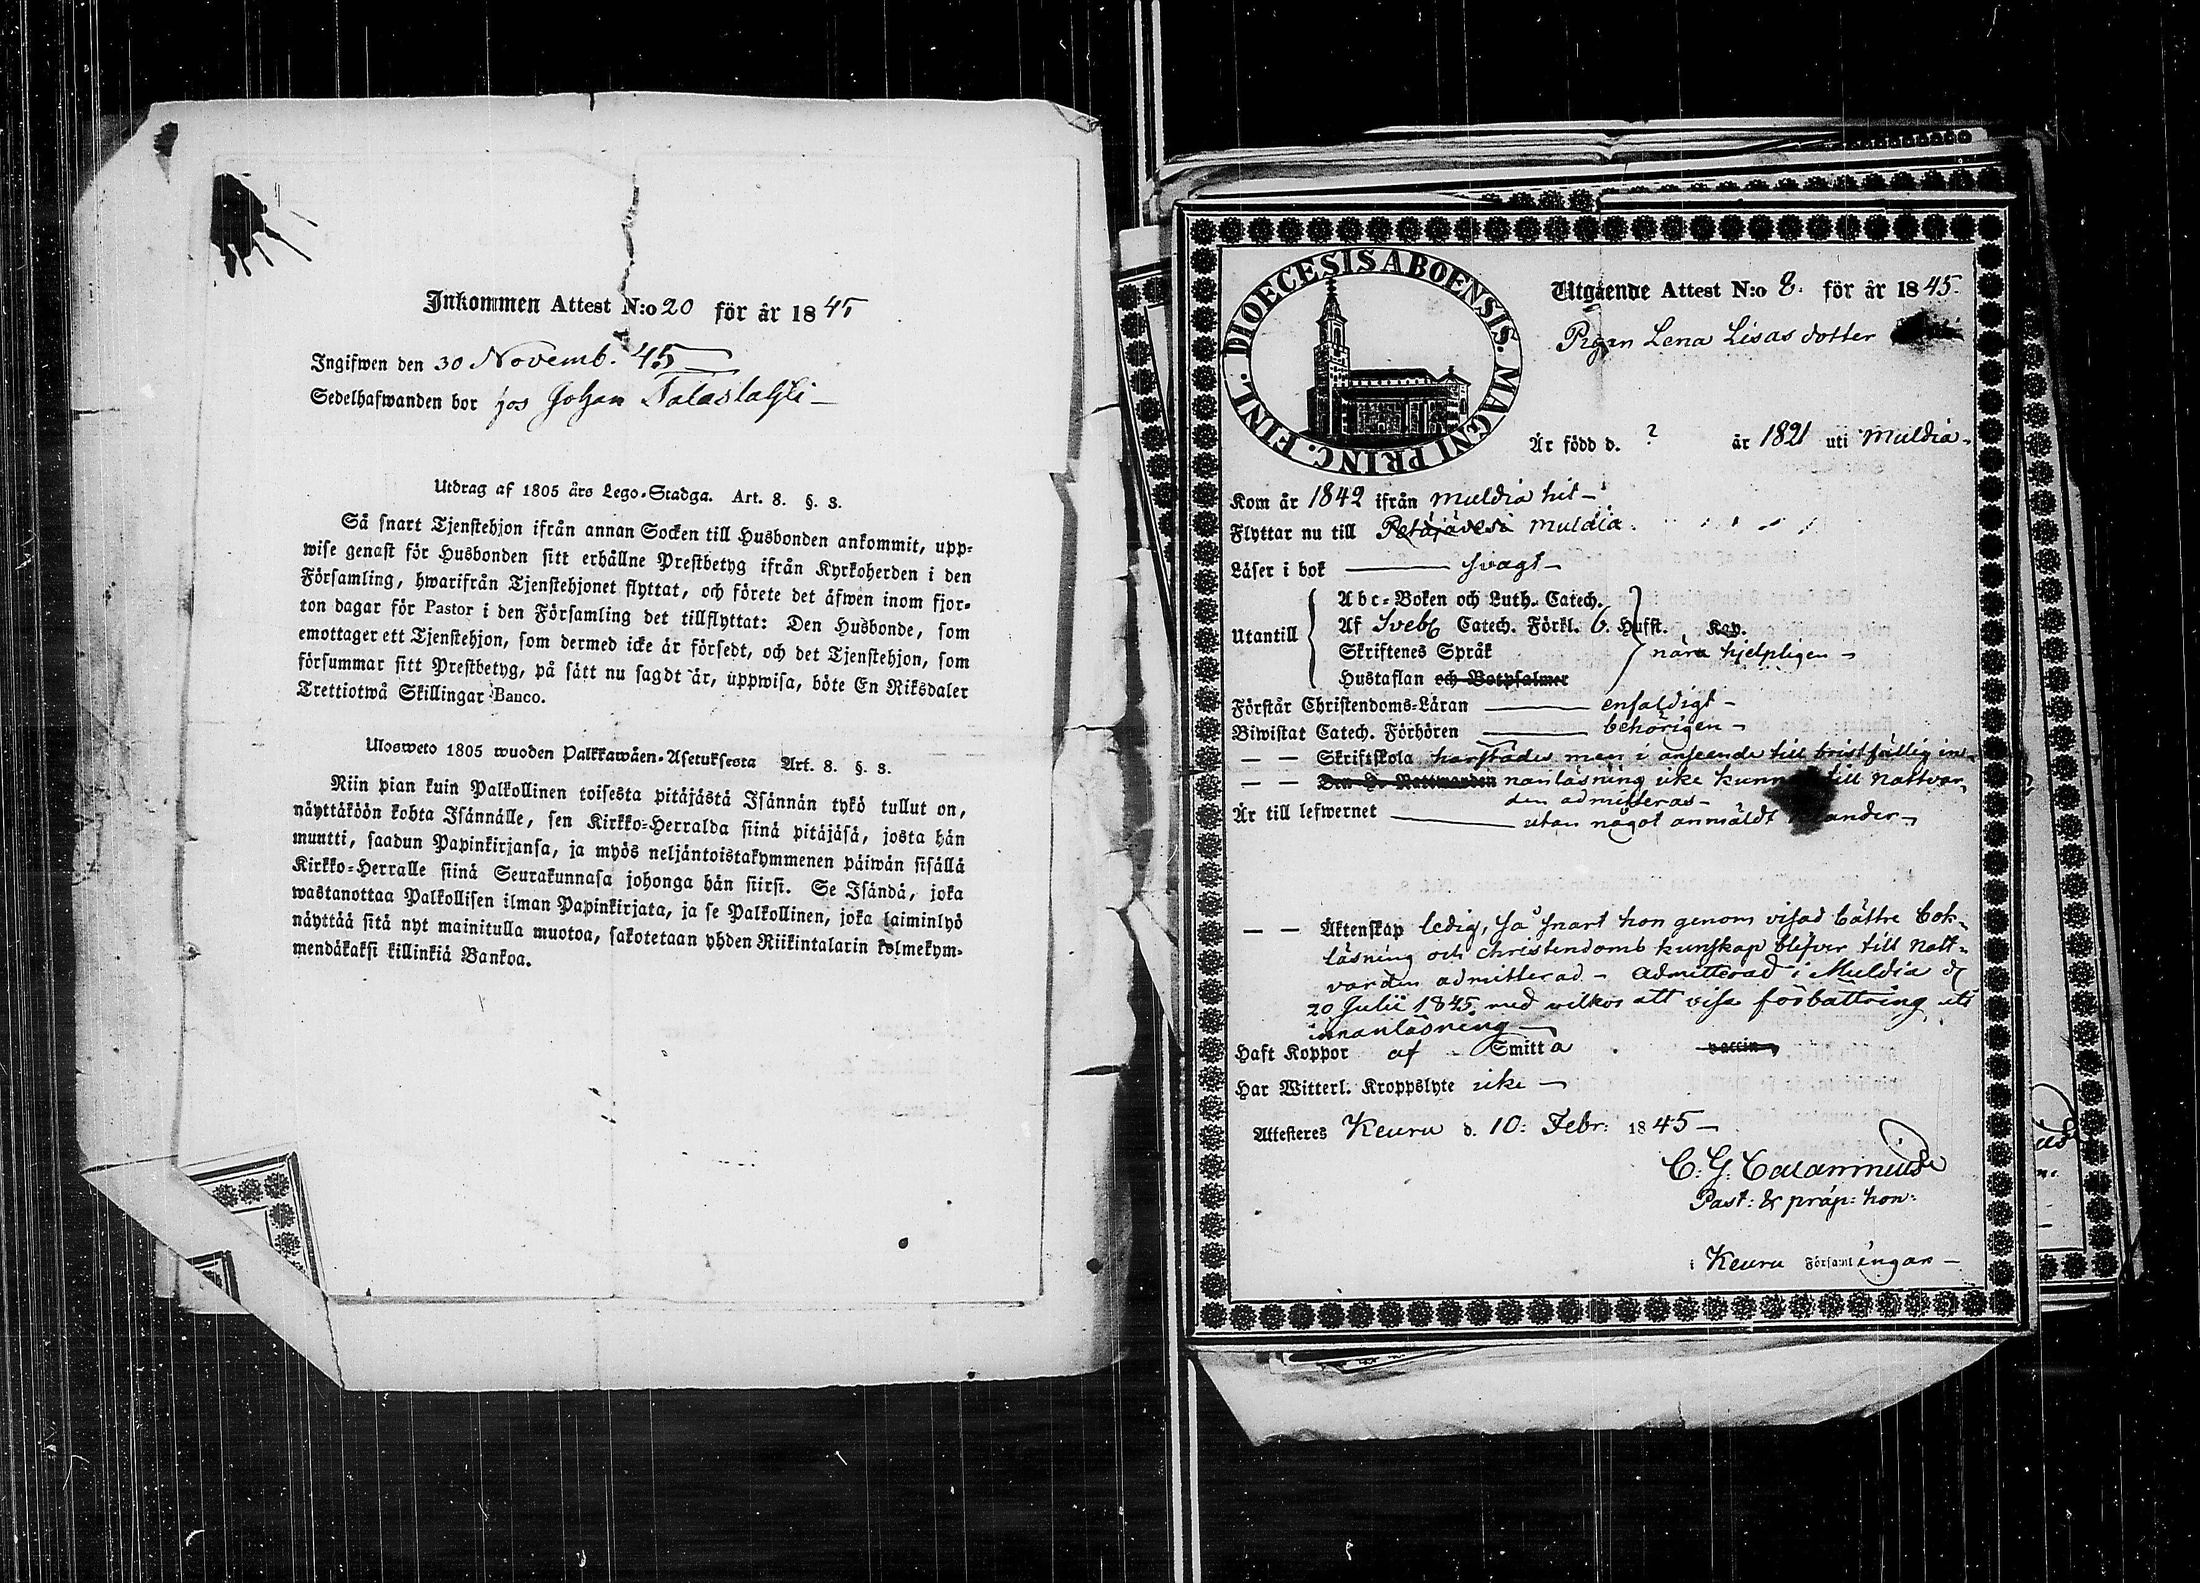 Inkommen Attest N:o 20 för år 1845
Ingifwen den 30 Novemb. 45
Sedelhafwanden bor hos Johan
Utdrag af 1805 års Lego-Stadga. Art. 8. §. 3.
Så snart Tjenstehjon ifrån annan Socken till Husbonden ankommit, upp-
wise genast för Husbonden sitt erhållne Prestbetyg ifrån Kyrkoherden i den
Församling, hwarifrån Tjenstehjonet flyttat, och förete det äfwen inom fjor-
ton dagar för Pastor i den Församling det tillflyttat: Den Husbonde, som
emottager ett Tjenstehjon, som dermed icke är försedt, och det Tjenstehjon, som
försummar sitt Prestbetyg, på sätt nu sagdt är, uppwisa, böte En Riksdaler
Trettiotwå Skillingar Banco.
Ulosweto 1805 wuoden Palkkawäen-Asetuksesta Art. 8. §. 3.
Niin pian kuin Palkollinen toisesta pitäjästä Isännän tykö tullut on,
näyttäköön kohta Isännälle, sen Kirkko-Herralda siinä pitäjäsä, josta hän
muutti, saadun Papinkirjansa, ja myös neljäntoistakymmenen päiwän sisällä
Kirkko-Herralle siinä Seurakunnasa johonga hän siirsi. Se Isändä, joka
wastanottaa Palkollisen ilman Papinkirjata, ja se Palkollinen, joka laiminlyö
näyttää sitä nyt mainitulla muotoa, sakotetaan yhden Riikintalarin kolmekym-
mendäkaksi killinkiä Bankoa.
DIOECESIS ABOENSIS. MAGNI PRINC. FINL.
Utgående Attest N:o 8. för år 1845.
Pigan Lena Lisasdotter
Är född d. ? år 1821 uti Muldia
Kom år 1842 ifrån Muldia hit
Flyttar nu till Petäjävesi Muldia
Läser i bok svagt
Utantill
Abc-Boken och Luth. Catech.
Af Sveb Catech. Förkl. 6. Hufst. Kap.
Skriftenes Språk nära hjelpligen
Hustaflan och Botpsalmer
Förstår Christendoms-Läran enfaldigt
Biwistat Catech. Förhören behörigen
— — Skriftskola härstädes men i anseende till bristfällig in-
— — Den H. Nattwarden nanläsning icke till nattvar
den admitteras
Är till lefwernet utan något anmäldt
— — Äktenskap ledig, så snart hon genom visad bättre bok-
läsning och Christendoms kunskap blifver till natt-
varden admitterad - Admitterad i Muldia d
20 Julii 1845 med wilkor att visa förbättring uti
innanläsning
Haft Koppor af Smitta vaccin
Har Witterl. Kroppslyte icke
Attesteres Keuru d. 10: Febr: 1845
C. G. Calamnius
Past: & præp: hon:
i Keuru Församlingar